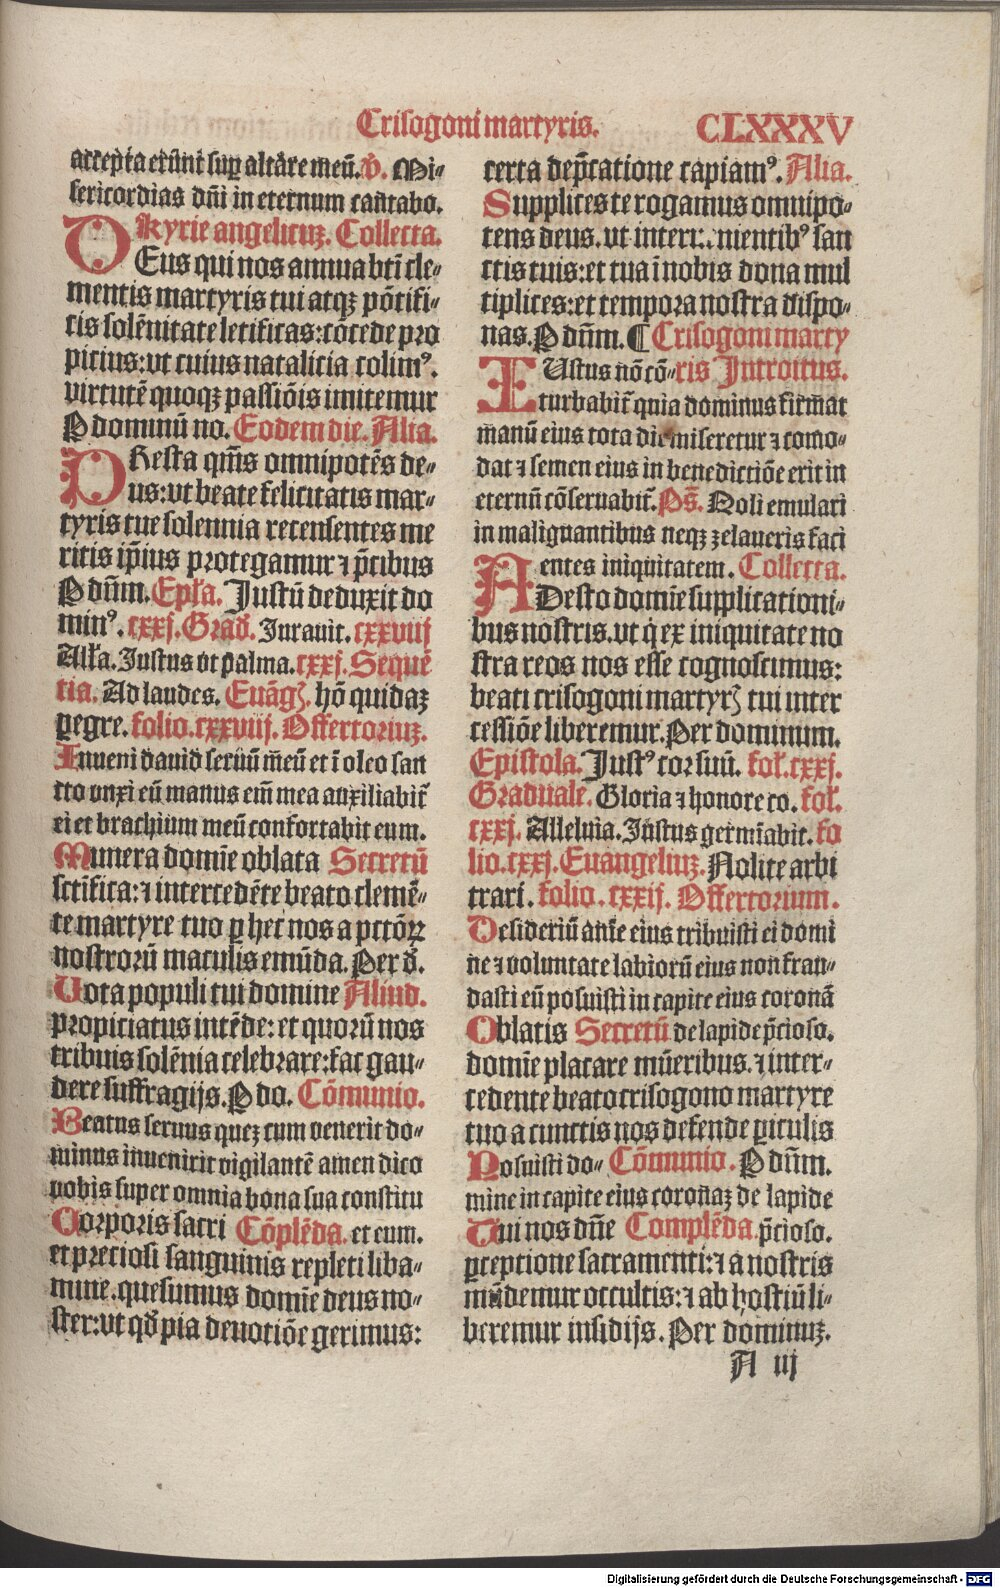 Crisogoni martyris.
CLXXXV
accepta erũnt sup altare meũ. v̄. Mi⸗
sericordias dñi in eternum cantabo.
kyrie angelicuꝫ. Collecta.
DEus qui nos annua bt̄i cle⸗
mentis martyris tui atqꝫ põtifi⸗
cis solẽnitate letificas: cõcede pro
picius: vt cuius natalicia colimꝰ.
virtutẽ quoqꝫ passiõis imitemur
P dominũ no. Eodem die. Alia.
PResta qm̃s omnipotẽs de⸗
us: vt beate felicitatis mar⸗
tyris tue solennia recensentes me
ritis ip̃ius protegamur ⁊ p̃cibus
P dñm. Ep̃la. Justũ deduxit do
minꝰ. cxxj. Grad̃. Jurauit. cxxviij
Alła. Justus vt palma. cxxj. Sequẽ
tia. Ad laudes. Euãgꝭ. hõ quidaꝫ
pegre. folio. cxxviij. Offertoriuꝫ.
Inueni dauid seruũ meũ et ĩ oleo san
cto vnxi eũ manus em̃ mea auxiliabit̃
ei et brachium meũ confortabit eum.
Munera domĩe oblata Secretũ
sctifica: ⁊ intercedẽte beato clemẽ⸗
te martyre tuo ꝑ hec nos a pctõꝝ
nostrorũ maculis emũda. Per d̃.
Uota populi tui domine Aliud.
propiciatus intẽde: et quorũ nos
tribuis solẽnia celebrare: fac gau⸗
dere suffragijs. P do. Cõmunio.
Beatus seruus queꝫ cum venerit do⸗
minus inuenirit vigilantẽ amen dico
vobis super omnia bona sua constitu
Corporis sacri Cõplẽda. et eum.
et preciosi sanguinis repleti liba⸗
mine. quesumus domĩe deus no⸗
ster: vt qđ pia deuotiõe gerimus:
certa dep̃catione capiamꝰ. Alia.
Supplices te rogamus omnipo⸗
tens deus. vt interuenientibꝰ san
ctis tuis: et tua ĩ nobis dona mul
tiplices: et tempora nostra dispo⸗
nas. P dñm. ¶ Crisogoni marty
IUstus nõ cõ⸗ris Introitus.
turbabit̃ quia dominus firmat
manũ eius tota die miseretur ⁊ como⸗
dat ⁊ semen eius in benedictiõe erit in
eternũ cõseruabit̃. Ps̃. Noli emulari
in malignantibus neqꝫ zelaueris faci
entes iniquitatem. Collecta.
ADesto domĩe supplicationi⸗
bus nostris. vt q̇ ex iniquitate no
stra reos nos esse cognoscimus:
beati crisogoni martyrꝭ tui inter
cessiõe liberemur. Per dominum.
Epistola. Justꝰ cor suũ. foł. cxxj.
Graduale. Gloria ⁊ honore co. foł.
cxxj. Alleluia. Justus germĩabit. fo
lio. cxxj. Euangeliuꝫ. Nolite arbi
trari. folio. cxxij. Offertorium.
Desideriũ anĩe eius tribuisti ei domi
ne ⁊ voluntate labiorũ eius non frau⸗
dasti eũ posuisti in capite eius coronã
Oblatis Secretũ de lapide p̃cioso.
domĩe placare mũeribus. ⁊ inter⸗
cedente beato crisogono martyre
tuo a cunctis nos defende ꝑiculis
Posuisti do⸗ Cõmunio. P dñm.
mine in capite eius coronaꝫ de lapide
Tui nos dñe Complẽda. p̃cioso.
ꝑceptione sacramenti: ⁊ a nostris
mũdemur occultis: ⁊ ab hostiũ li⸗
beremur insidijs. Per dominuꝫ.
A iij
Digitalisierung gefördert durch die Deutsche Forschungsgemeinschaft - DFG